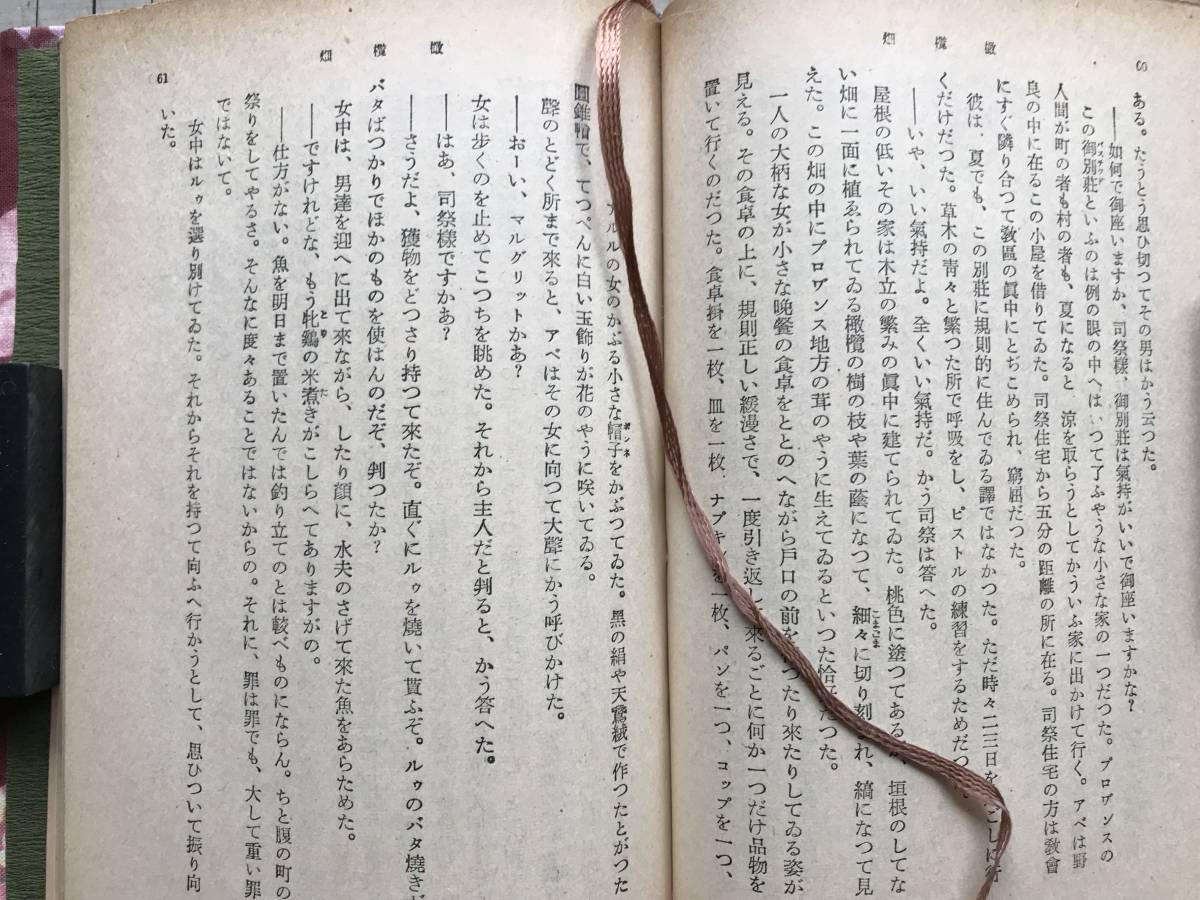 橄欖畑
60
ある。たうとう思ひ切つてその男はかう云つた。
――如何で御座いますか、司祭樣、御別莊は氣持がいいで御座いますかな？
この御別莊といふのは例の眼の中へはいつて了ふやうな小さな家の一つだつた。プロヷンスの
人間が町の者も村の者も、夏になると 涼を取らうとしてかういふ家に出かけて行く。アベは野
良の中に在るこの小屋を借りてゐた。司祭住宅から五分の距離の所に在る。司祭住宅の方は敎會
にすぐ隣り合つて敎區の眞中にとぢこめられ、窮屈だつた。
彼は、夏でも、この別莊に規則的に住んでゐる譯ではなかつた。ただ時々二三日を ごしに行
くだけだつた。草木の靑々と繁つた所で呼吸をし、ピストルの練習をするためだつた
――いや、いい氣持だよ。全くいい氣持だ。かう司祭は答へた。
屋根の低いその家は木立の繁みの眞中に建てられてゐた。桃色に塗つてある 、垣根のしてな
い畑に一面に植ゑられてゐる橄欖の樹の枝や葉の蔭になつて、細々に切り刻 れ、縞になつて見
えた。この畑の中にプロヷンス地方の茸のやうに生えてゐるといつた恰 だつた。
一人の大柄な女が小さな晩餐の食卓をととのへながら戶口の前を つたり來たりしてゐる姿が
見える。その食卓の上に、規則正しい緩漫さで、一度引き返し 來るごとに何か一つだけ品物を
置いて行くのだつた。食卓掛を一枚、皿を一枚 ナプキンを一枚、パンを一つ、コップを一つ、
橄欖畑
61
アルルの女のかぶる小さな帽子をかぶつてゐた。黑の絹や天鵞絨で作つたとがつた
圓錐帽で、てつぺんに白い玉飾りが花のやうに咲いてゐる。
聲のとどく所まで來ると、アベはその女に向つて大聲にかう呼びかけた。
――おーい、マルグリットかあ？
女は步くのを止めてこつちを眺めた。それから主人だと判ると、かう答へた。
――はあ、司祭樣ですかあ？
――さうだよ、獲物をどつさり持つて來たぞ。直ぐにルゥを燒いて貰ふぞ。ルゥのバタ燒きだ
バタばつかりでほかのものを使はんのだぞ、判つたか？
女中は、男達を迎へに出て來ながら、したり顏に、水夫のさげて來た魚をあらためた。
――ですけれどな、もう牝鷄の米煮きがこしらへてありますがの。
――仕方がない。魚を明日まで置いたんでは釣り立てのとは較べものにならん。ちと腹の町の
祭りをしてやるさ。そんなに度々あることではないからの。それに、罪は罪でも、大して重い罪
ではないて。
女中はルゥを選り別けてゐた。それからそれを持つて向ふへ行かうとして、思ひついて振り向
いた。